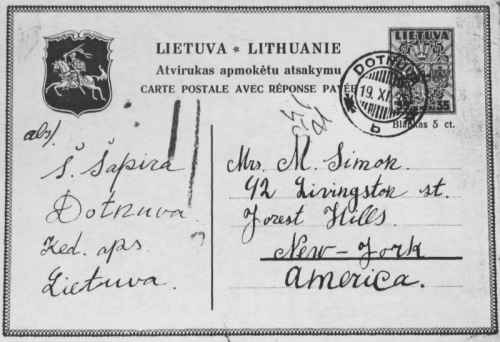 LIETUVA * LITHUANIE
Atvirukas apmokėtu atsakymu
CARTE POSTALE AVEC RÉPONSE PAYÉE
LIETUVA
35
DOTNUVA
19. XI
b
Blankas 5 ct.
abs.
Š. Šapira
Dotnuva
Ked. aps.
Lietuva.
Mrs. M. Simon.
92 Livingston st.
Forest Hills.
New-York
America.